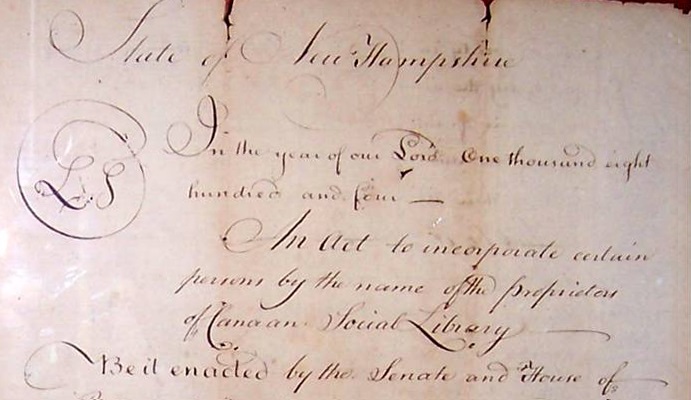 State of New Hampshire
L S
In the year of our Lord One thousand eight
hundred and four —
An Act to incorporate certain
persons by the name of the Proprietors
of Canaan Social Library —
Be it enacted by the Senate and House of